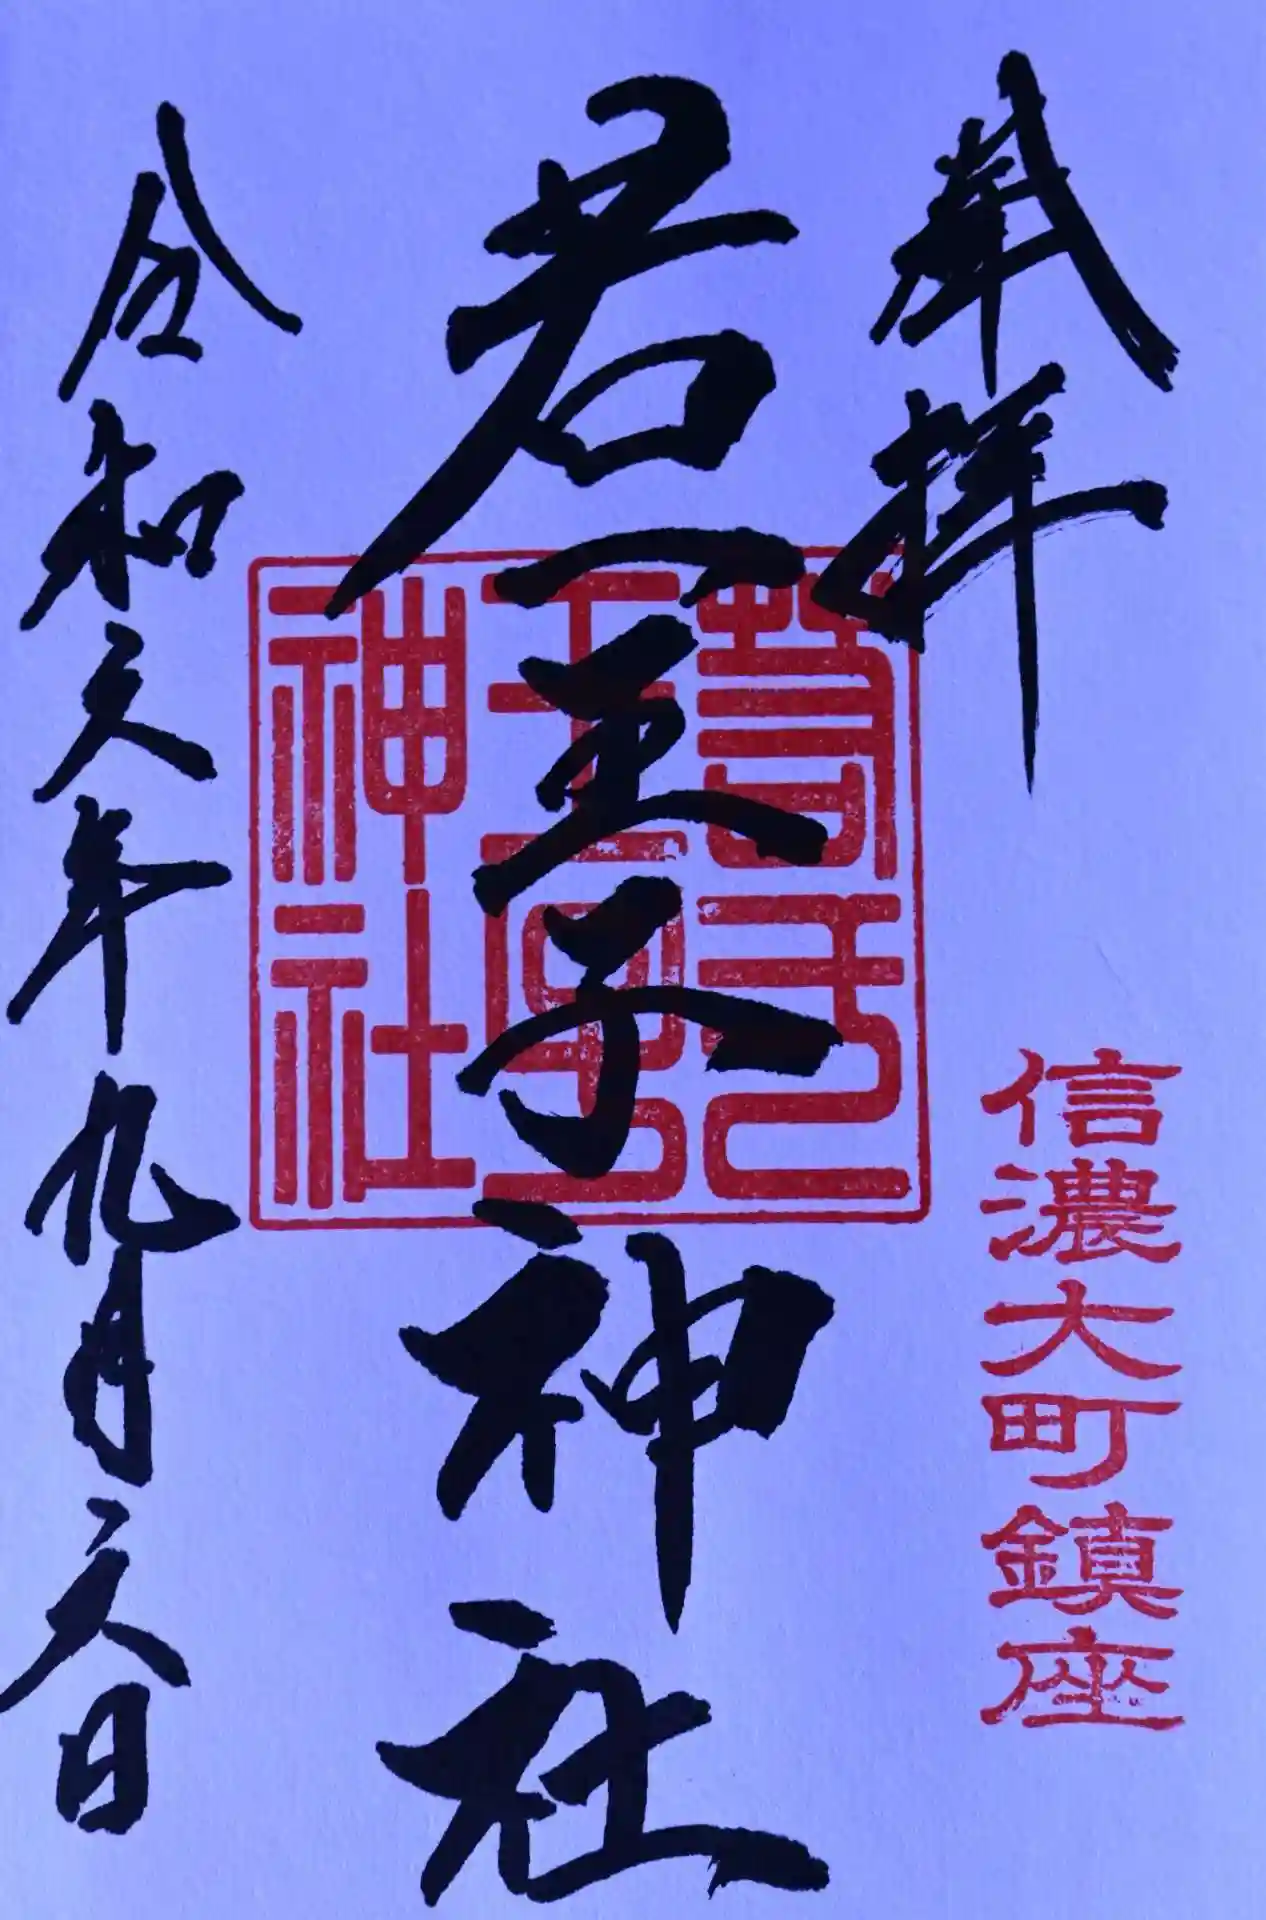 奉拝
信濃大町鎮座
若一王子神社
神社
令和六年九月六日